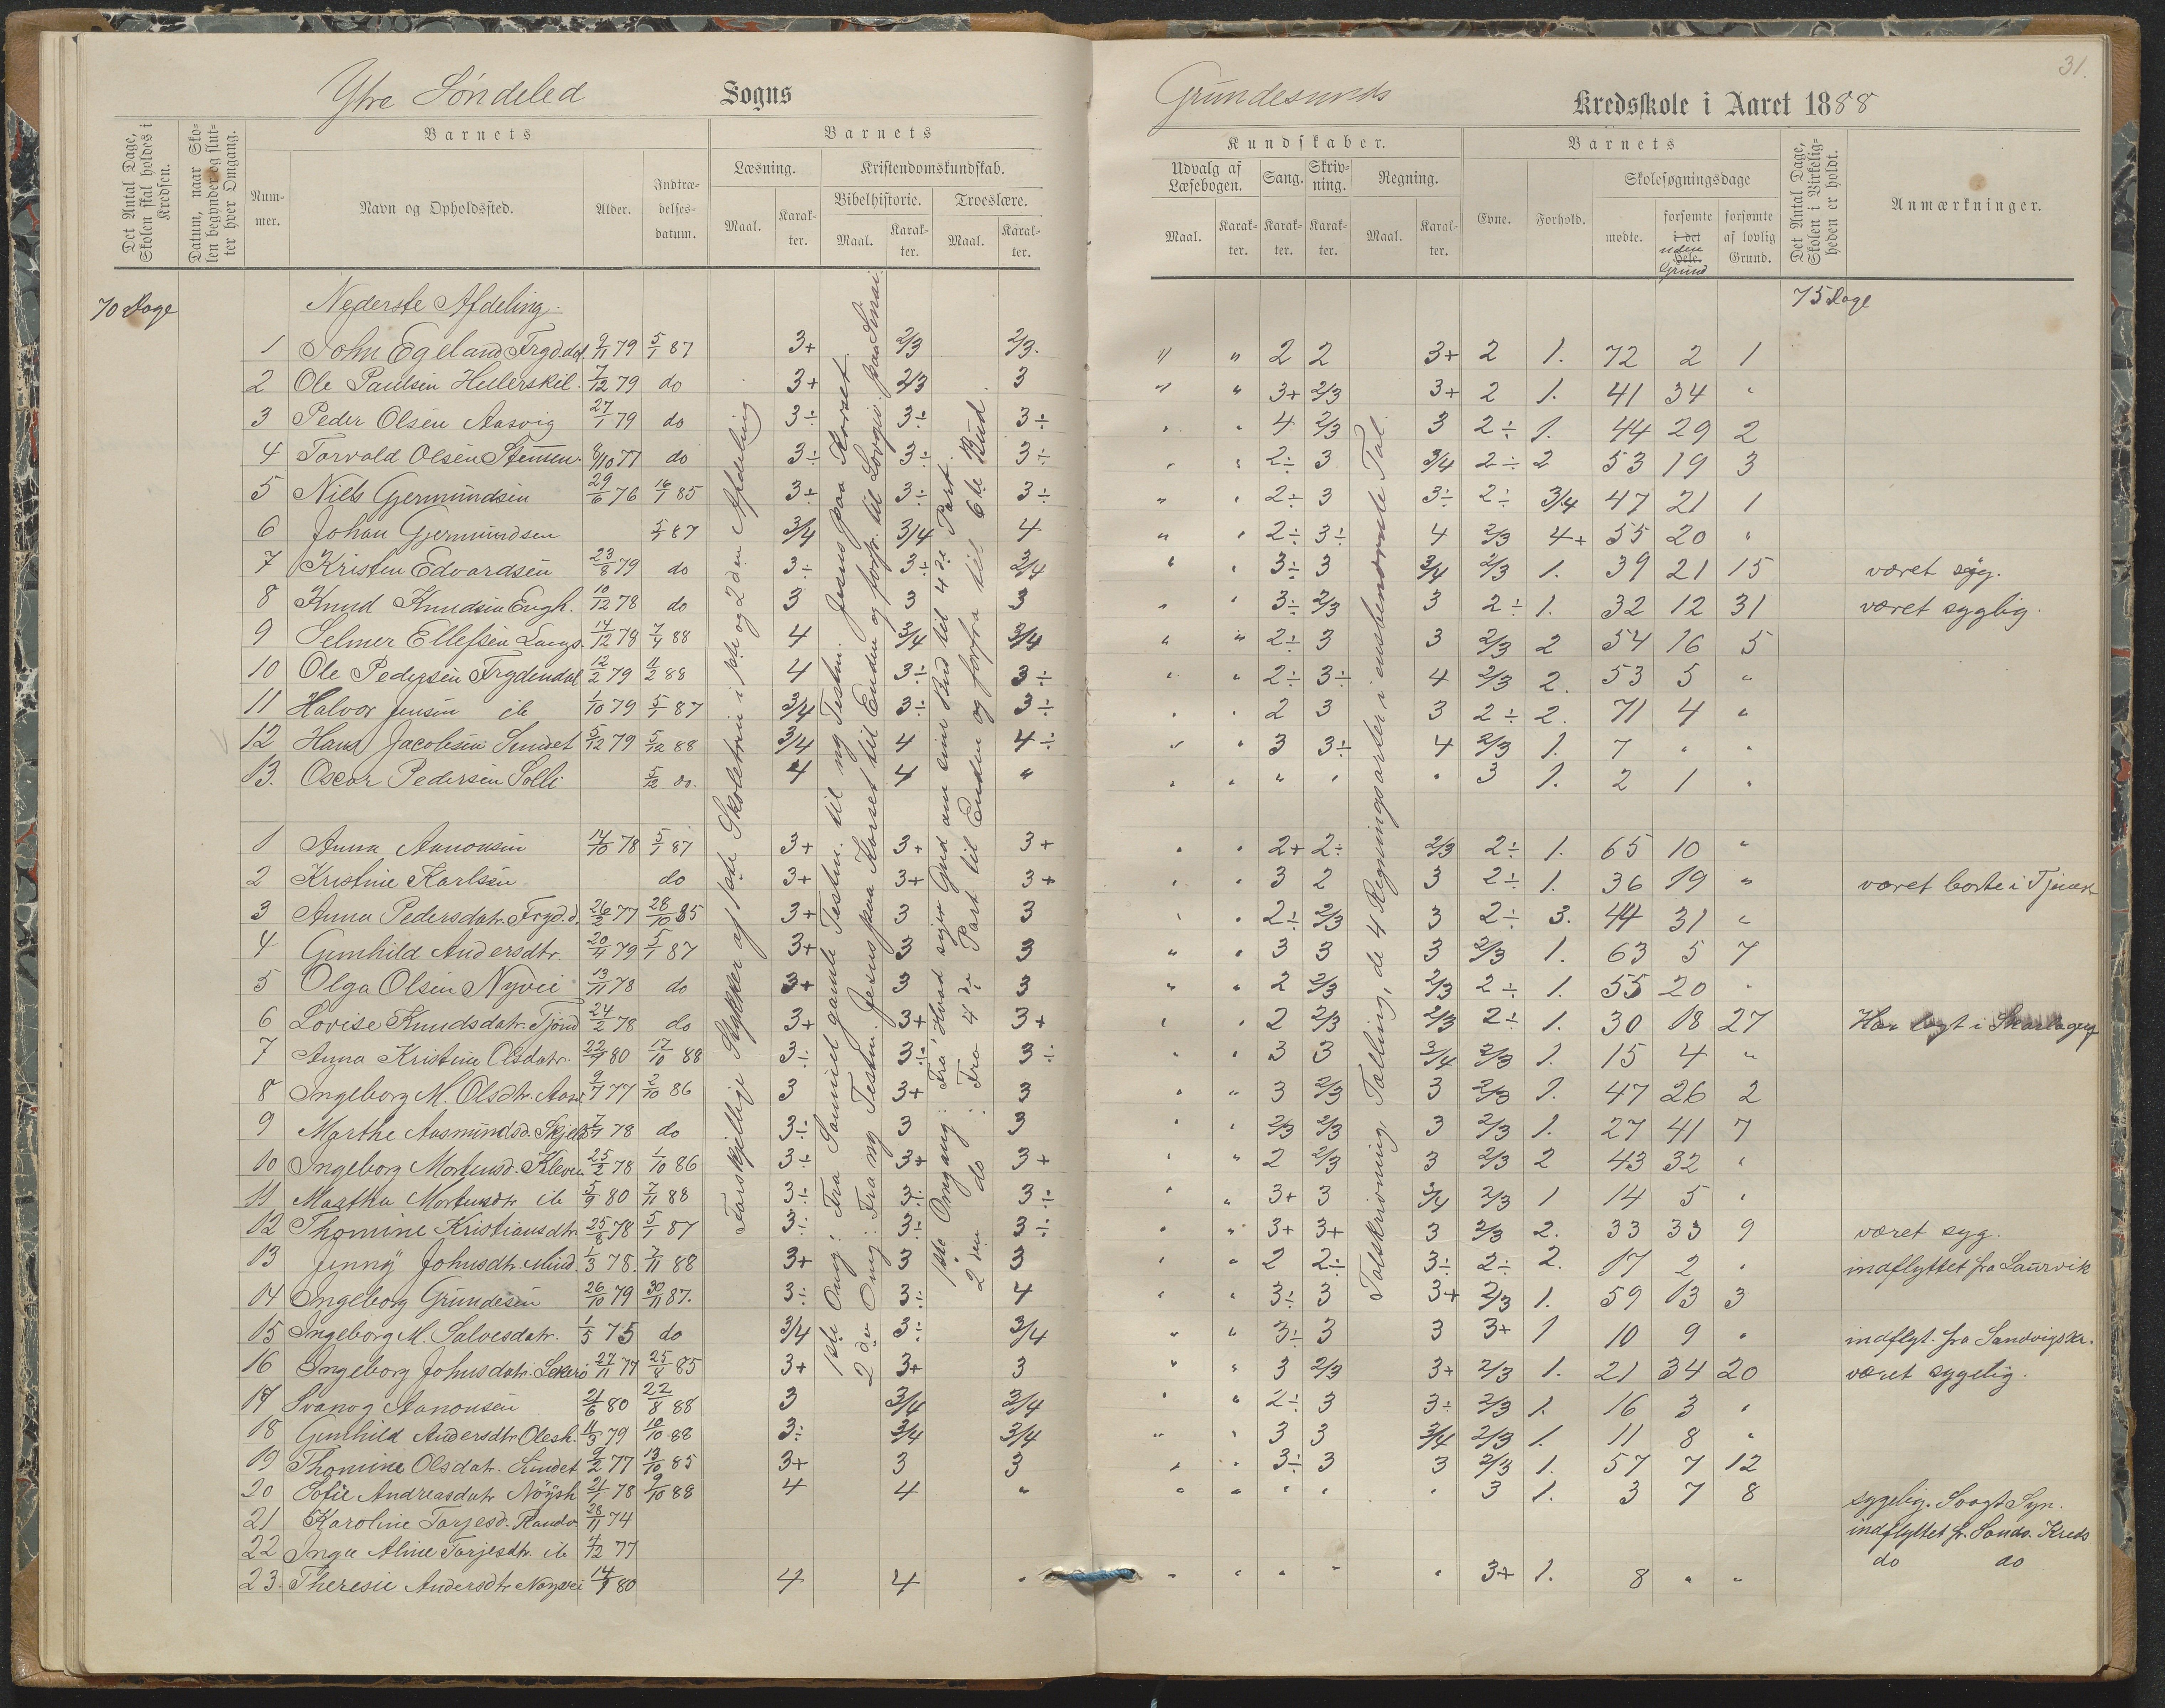 Ytre Söndeled Sogns
Det Antal Dage, Skolen skal holdes i Kredsen.
Datum, naar Skolen begynder og slutter hver Omgang.
Barnets
Nummer.
Navn og Opholdssted.
Alder.
Indtrædelsesdatum.
Barnets
Læsning.
Kristendomskundskab.
Bibelhistorie. Troeslære.
Maal. Karakter. Maal. Karakter. Maal. Karakter.
70 Dage
Nederste Afdeling.
1 John Egeland Frgd.dal 9/11 79 5/1 87 3+ 2/3 2/3.
2 Ole Paulsen Hellerskil. 7/12 79 do 3+ 2/3 3
3 Peder Olsen Aasvig 27/1 79 do 3÷ 3÷ 3÷
4 Torvald Olsen 9/10 77 do 3÷ 3÷ 3÷
5 Niels Germundsen 29/6 76 16/1 85 3÷ 3÷ 3÷
6 Johan Gjermundsen 5/1 87 3/4 3/4 4
7 Kristen Edvardsen 23/8 79 do 3÷ 3÷ 3/4
8 Knud Knudsen Engh. 10/12 78 do 3 3 3
9 Selmer Ellefsen Langs. 14/12 78 7/4 88 4 3/4 3/4
10 Ole Pedersen Frydendal 12/2 79 11/2 88 4 3÷ 3÷
11 Halvor Jensen ib 1/10 79 5/1 87 3/4 3÷ 3÷
12 Hans Jacobsen Sundet 5/12 79 5/12 88 3/4 4 4÷
13. Oscar Pedersen Solli 5/12 do. 4 4 "
1 Anna Aanonsen 14/10 78 5/1 87 3+ 3+ 3+
2 Kristine Karlsen do 3+ 3+ 3+
3 Anna Pedersdatr. Fryd.d. 26/3 77 28/10 85 3+ 3 3
4 Gunhild Andersdtr. 20/4 79 5/1 87 3+ 3 3
5 Olga Olsen Nyvei 13/11 78 do 3+ 3 3
6 Lovise Knudsdatr. Tjönd 24/2 78 do 3+ 3+ 3+
7 Anna Kristine Olsdatr. 22/7 80 17/10 88 3÷ 3÷ 3÷
8 Ingeborg M. Olsdtr. Aasv. 9/7 77 2/10 86 3 3+ 3
9 Marthe Aasmundsd. 78 do 3÷ 3 3
10 Ingeborg Mortensd. Kleven 25/2 78 1/10 86 3÷ 3+ 3+
11 Martha Mortensdtr ib 5/9 80 7/11 88 3÷ 3÷ 3÷
12 Thomine Kristiansdtr. 25/8 78 5/1 87 3÷ 3÷ 3÷
13 Jenny Johnsdtr. Mind. 1/3 78. 7/11 88 3+ 3 3
14 Ingeborg Grundesen 26/10 79 30/11 87. 3÷ 3÷ 4
15 Ingeborg M. Salvesdatr. 1/5 75 do 3/4 3÷ 3/4
16 Ingeborg Johnsdatr. 27/11 77 25/8 85 3+ 3+ 3
17 Svanog Aanonsen 21/6 80 22/8 88 3 3/4 3/4
18 Gunhild Andersdtr. Olesh. 11/3 79 10/10 88 3÷ 3/4 3/4
19 Thomine Olsdatr. Sundet 9/2 77 13/10 85 3+ 3 3
20 Sofie Andreasdatr 21/1 78 9/10 88 4 4 "
21 Karoline Tarjesd. Randv. 28/11 74
22 Inga Aline Tarjesdtr. ib 4/12 77
23. Theresie Andersdtr Nöysvei 14/9 80 4 4 "
Forskjellige Stykker af 1ste Skoletrin i 1ste og 2den Afdeling
1ste Omg: Fra Samuel gamle Testm. til ny Testm. Jesus paa Korset.
2den Omg: Fra ny Testm. Jesus paa Korset til Enden og forfr. til Lovgiv. paa Sinai
1ste Omgang: Fra Hvad siger Gud om sine Bud til 4de Part.
2den do: Fra 4de Part til Enden og forfra til 6te Bud.
31.
Grundesunds Kredsskole i Aaret 1888
Kundskaber.
Barnets
Udvalg af Læsebogen. Sang. Skrivning. Regning.
Evne. Forhold.
Skolesøgningsdage
Maal. Karakter. Karakter. Karakter. Maal. Karakter.
mødte. forsømte i det hele. uden Grund forsømte af lovlig Grund.
Det Antal Dage, Skolen i Virkeligheden er holdt.
Anmærkninger.
75 Dage
" " 2 2 3+ 2 1. 72 2 1
" " 3+ 2/3 3+ 2 1. 41 34 "
" " 4 2/3 3 2÷ 1. 44 29 2
" " 2÷ 3 3/4 2÷ 2 53 19 3
" " 2÷ 3 3÷ 2÷ 3/4 47 21 1
" " 2÷ 3÷ 4 2/3 4+ 55 20 "
" " 3÷ 3 3/4 2/3 1. 39 21 15 været syg.
" " 3÷ 2/3 3 2÷ 1. 32 12 31 været syglig.
" " 2÷ 3 3 2/3 2 54 16 5
" " 2÷ 3÷ 4 2/3 2. 53 5 "
" " 2 3 3 2÷ 2. 71 4 "
" " 3 3÷ 4 2/3 1. 7 " "
" " " " " 3 1. 2 1 "
" " 2+ 2÷ 2/3 2÷ 1. 65 10 "
" " 3 2 3 2÷ 1. 36 19 " været borte i Tjeneste
" " 2÷ 2/3 3 2÷ 3. 44 31 "
" " 3 3 3 2/3 1. 63 5 7
" " 2 2/3 2/3 2÷ 1. 55 20 "
" " 2 2/3 2/3 2÷ 1. 30 18 27 Har lagt i Skarlagensf
" " 3 3 3/4 2/3 1. 15 4 "
" " 3 2/3 3 2/3 1. 47 26 2
" " 2/3 2/3 3 2/3 1. 27 41 7
" " 2 2/3 3 2/3 2 43 32 "
" " 3+ 3 3/4 2/3 1 14 5 "
" " 3+ 3+ 3 2/3 2. 33 33 9 været syg.
" " 2 2÷ 3÷ 2÷ 2. 17 2 " indflyttet fra Laurvik
" " 3÷ 3 3+ 2/3 1. 59 13 3
" " 3÷ 3 3 3+ 1 10 9 " indflyt. fra Sandvigskr.
" " 3 2/3 3+ 2/3 1. 21 34 20 været sygelig.
" " 2÷ 3 3÷ 2/3 1. 16 3 "
" " 3 3 3/4 2/3 1. 11 8 "
" " 3÷ 3 3 2/3 1. 57 7 12
" " " " " 3 1. 3 7 8 sygelig. Svagt Syn.
indflyttet fr. Sands. Kreds
do do
" " " " " 3+ 1. 8 " "
Talskrivning. Tælling, de 4 Regningsarter i ensbenævnte Tal.